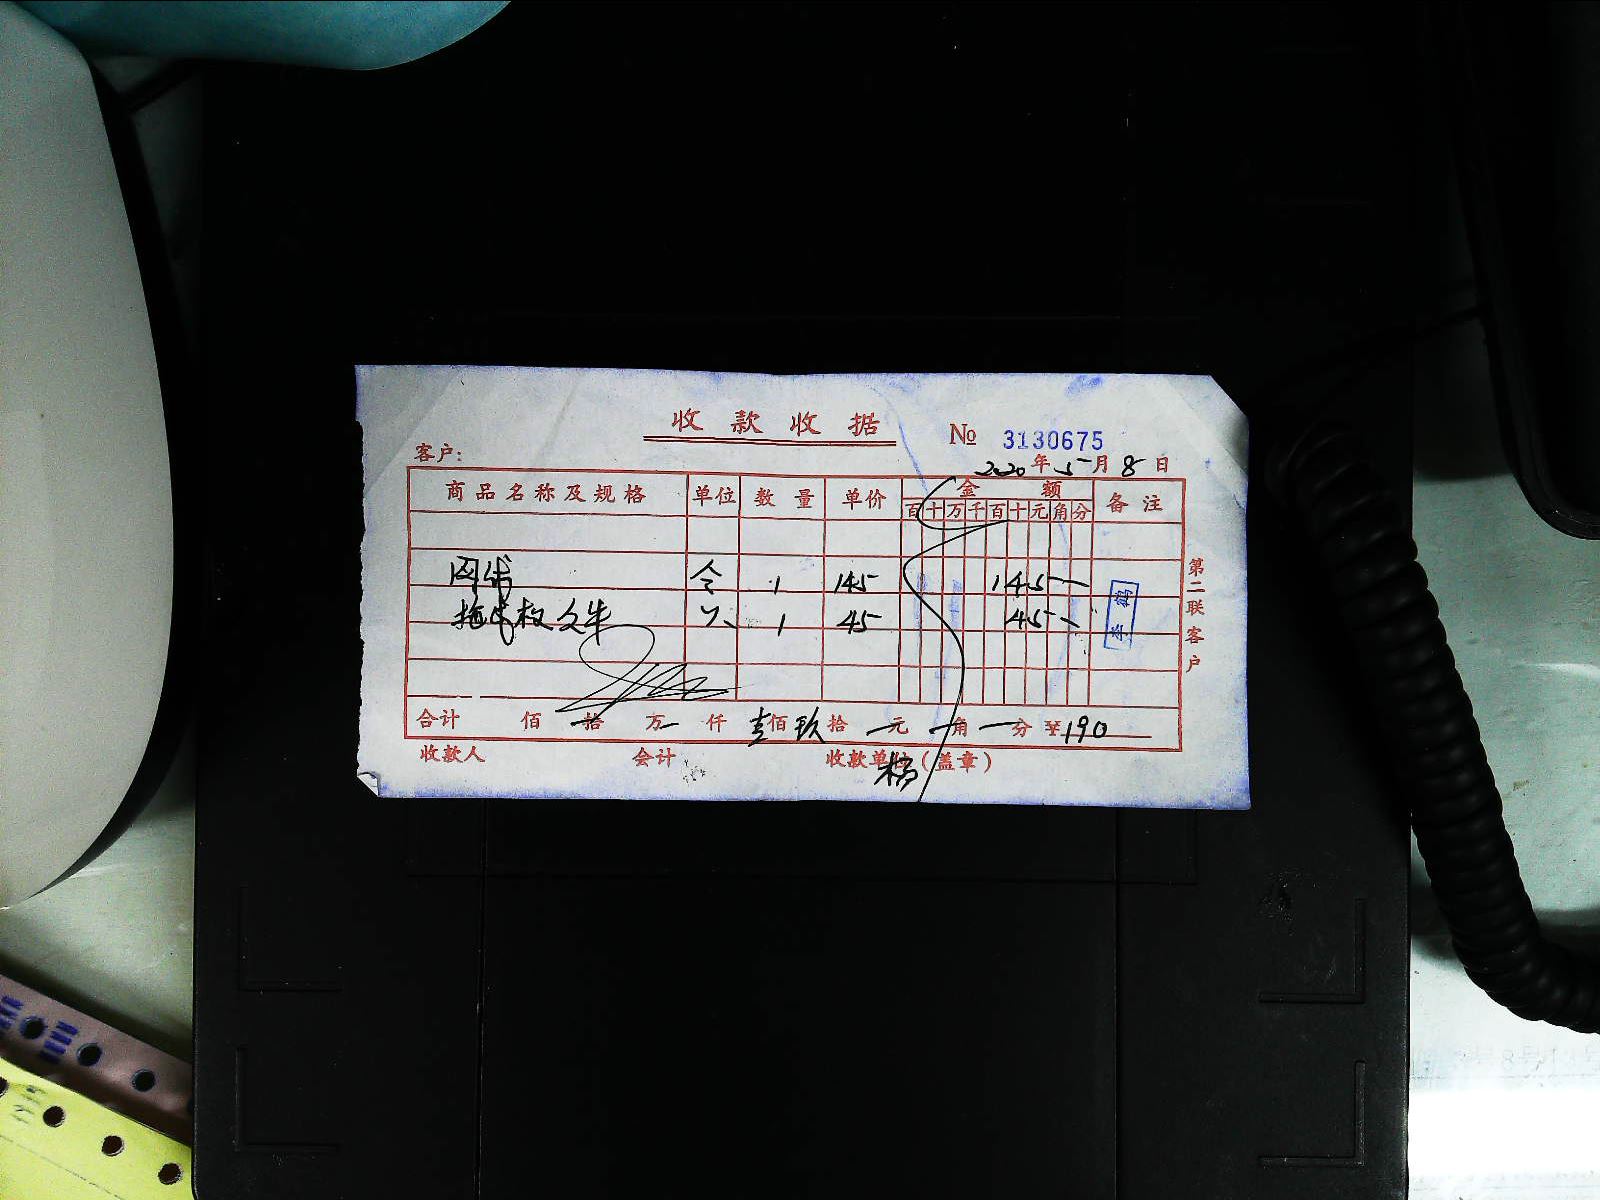 收款收据
№ 3130675
客户:
2020年5月8日
商品名称及规格 单位 数量 单价 金额 备注
百十万千百十元角分
1 145 145—
拖 板 1 45 45—
第二联客户
合计 佰 拾 万 仟 壹佰 玖拾 元 角 分 ¥190
收款人 会计 收款单位(盖章)
杨